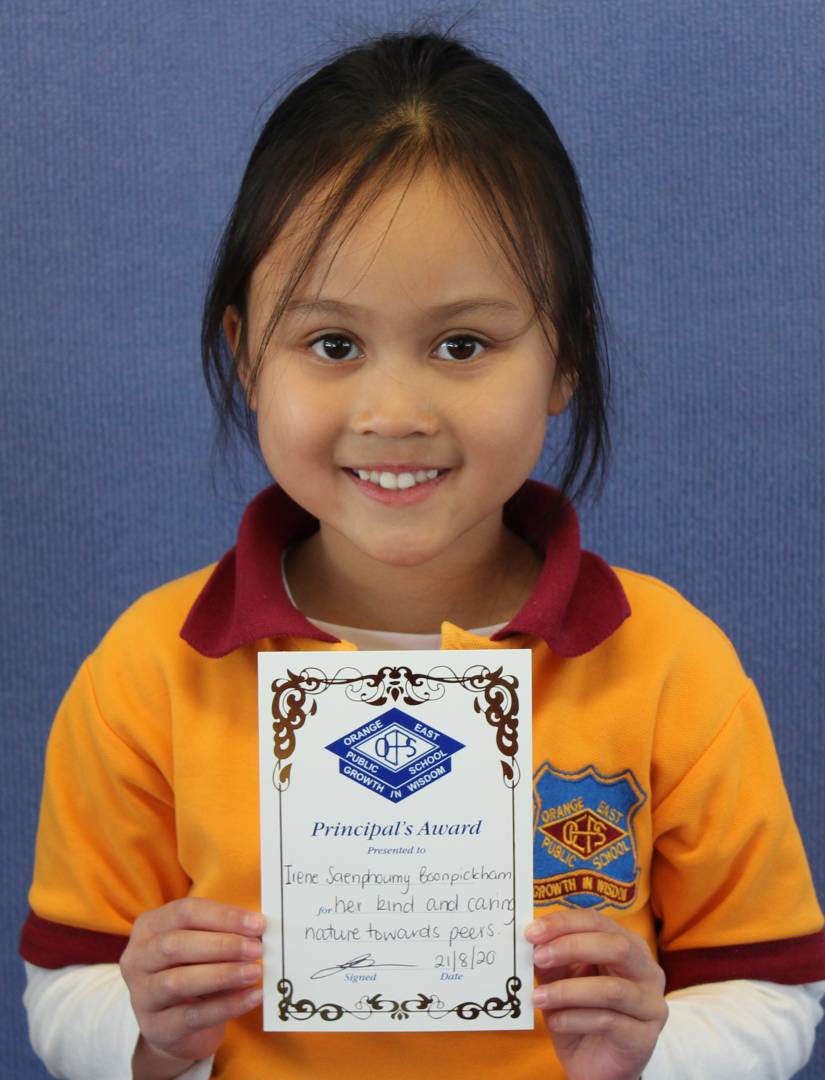 ORANGE EAST
OPS
PUBLIC SCHOOL
GROWTH IN WISDOM
Principal's Award
Presented to
Irene Saenphoumy Boonpickham
for her kind and caring
nature towards peers.
21/8/20
Signed Date
ORANGE EAST
OPS
PUBLIC SCHOOL
GROWTH IN WISDOM